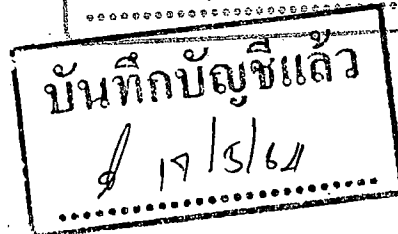 บันทึกบัญชีแล้ว
17/5/64